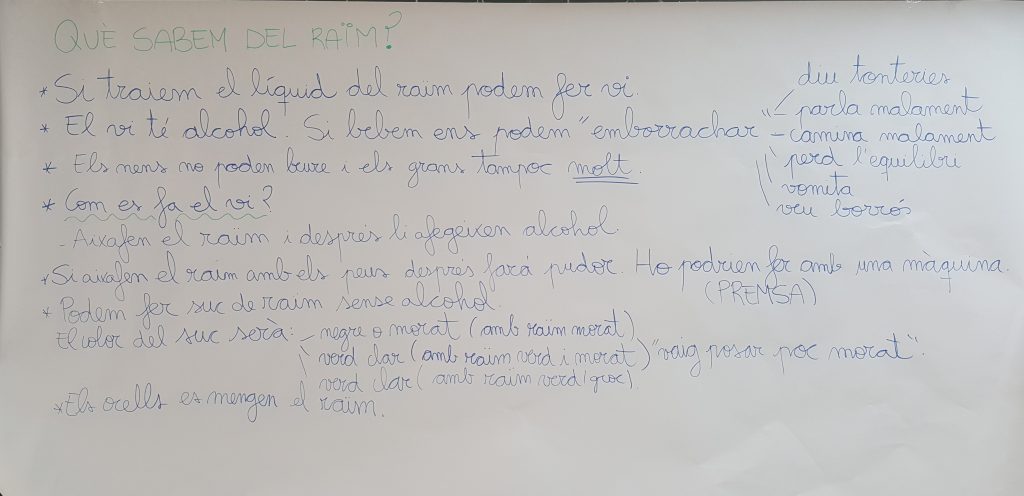 QUÈ SABEM DEL RAÏM?
* Si traiem el líquid del raïm podem fer vi.
* El vi té alcohol. Si bebem ens podem "emborrachar"
diu tonteries
parla malament
– camina malament
perd l'equilibri
vomita
veu borrós
* Els nens no poden beure i els grans tampoc molt.
* Com es fa el vi?
- Aixafen el raïm i després li afegeixen alcohol.
* Si aixafen el raïm amb els peus després farà pudor. Ho podrien fer amb una màquina.
(PREMSA)
* Podem fer suc de raïm sense alcohol.
El color del suc serà: – negre o morat (amb raïm morat)
verd clar (amb raïm verd i morat) "vaig posar poc morat".
verd clar (amb raïm verd/groc).
* Els ocells es mengen el raïm.